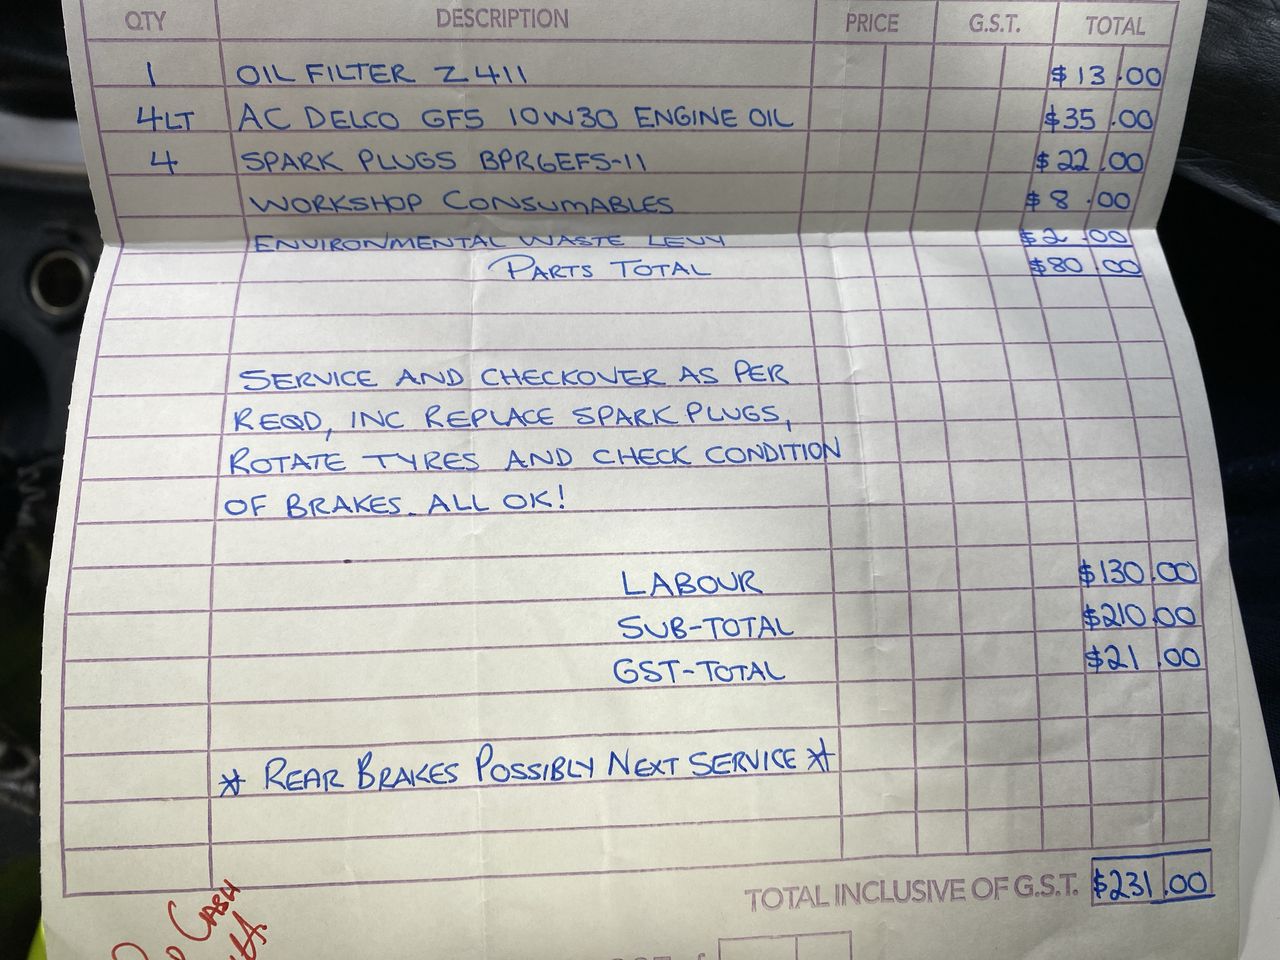 QTY DESCRIPTION PRICE G.S.T. TOTAL
1 OIL FILTER Z411 $13.00
4LT AC DELCO GF5 10W30 ENGINE OIL $35.00
4 SPARK PLUGS BPR6EFS-11 $22.00
WORKSHOP CONSUMABLES $8.00
ENVIRONMENTAL WASTE LEVY $2.00
PARTS TOTAL $80.00
SERVICE AND CHECKOVER AS PER
REQD, INC REPLACE SPARK PLUGS,
ROTATE TYRES AND CHECK CONDITION
OF BRAKES. ALL OK!
LABOUR $130.00
SUB-TOTAL $210.00
GST-TOTAL $21.00
* REAR BRAKES POSSIBLY NEXT SERVICE *
TOTAL INCLUSIVE OF G.S.T. $231.00
CASH